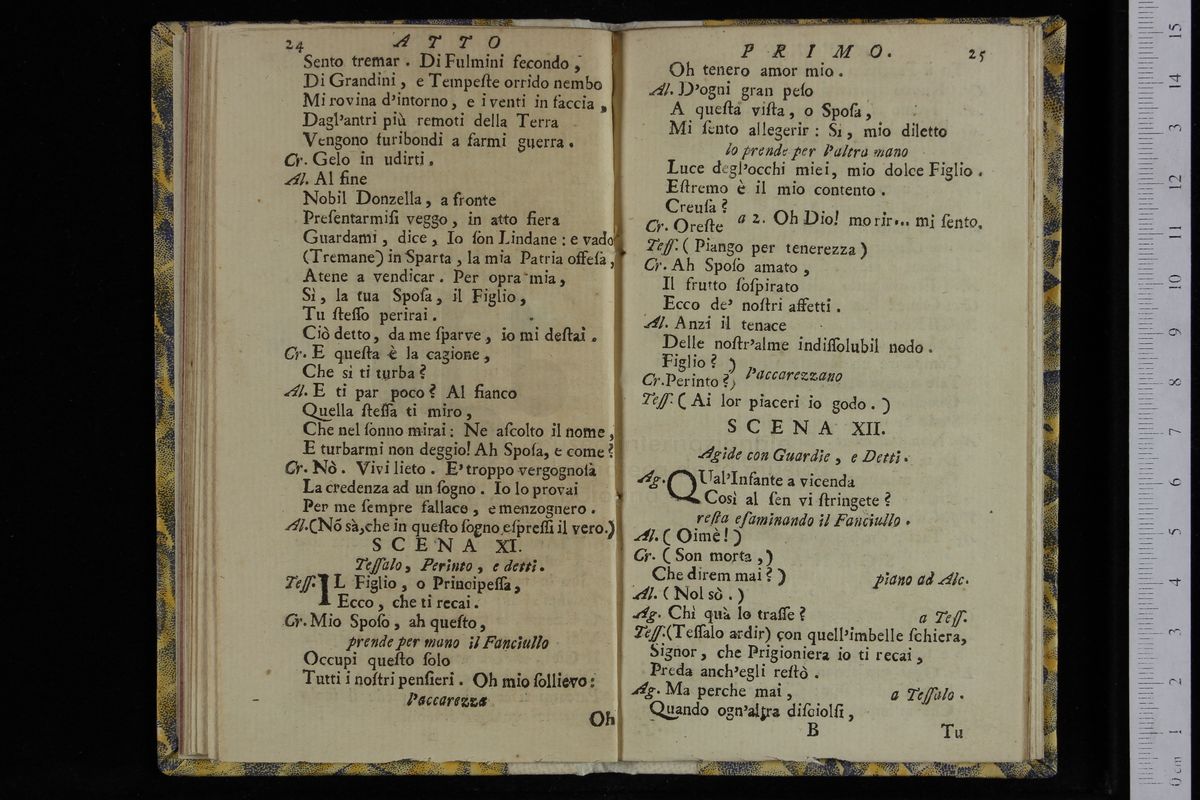 24 ATTO
Sento tremar . Di Fulmini fecondo ,
Di Grandini , e Tempeſte orrido nembo
Mi rovina d'intorno , e i venti in faccia ,
Dagl'antri più remoti della Terra
Vengono furibondi a farmi guerra .
Cr. Gelo in udirti .
Al. Al fine
Nobil Donzella , a fronte
Preſentarmiſi veggo , in atto fiera
Guardami , dice , Io ſon Lindane : e vado
(Tremane) in Sparta , la mia Patria offeſa ,
Atene a vendicar . Per opra mia ,
Sì , la tua Spoſa , il Figlio ,
Tu ſteſſo perirai .
Ciò detto , da me ſparve , io mi deſtai .
Cr. E queſta è la cagione ,
Che sì ti turba ?
Al. E ti par poco ? Al fianco
Quella ſteſſa ti miro ,
Che nel ſonno mirai : Ne aſcolto il nome ,
E turbarmi non deggio! Ah Spoſa, e come ?
Cr. Nò . Vivi lieto . E' troppo vergognoſa
La credenza ad un ſogno . Io lo provai
Per me ſempre fallace , e menzognero .
Al. (Nõ sà, che in queſto ſogno eſpreſſi il vero.)
SCENA XI.
Teſſalo , Perinto , e detti .
Teſſ. IL Figlio , o Principeſſa ,
Ecco , che ti recai .
Cr. Mio Spoſo , ah queſto ,
prende per mano il Fanciullo
Occupi queſto ſolo
Tutti i noſtri penſieri . Oh mio ſollievo :
l'accarezza
Oh
PRIMO. 25
Oh tenero amor mio .
Al. D'ogni gran peſo
A queſta viſta , o Spoſa ,
Mi ſento allegerir : Sì , mio diletto
lo prende per l'altra mano
Luce degl'occhi miei , mio dolce Figlio .
Eſtremo è il mio contento .
Creuſa ?
Cr. Oreſte a 2. Oh Dio! morir... mi ſento.
Teſſ. ( Piango per tenerezza )
Cr. Ah Spoſo amato ,
Il frutto ſoſpirato
Ecco de' noſtri affetti .
Al. Anzi il tenace
Delle noſtr'alme indiſſolubil nodo .
Figlio ? )
Cr. Perinto ? ) l'accarezzano
Teſſ. ( Ai lor piaceri io godo . )
SCENA XII.
Agide con Guardie , e Detti .
Ag. QUal'Infante a vicenda
Così al ſen vi ſtringete ?
reſta eſaminando il Fanciullo .
Al. ( Oimè ! )
Cr. ( Son morta , )
Che direm mai ? ) piano ad Alc.
Al. ( Nol sò . )
Ag. Chi quà lo traſſe ? a Teſſ.
Teſſ. (Teſſalo ardir) con quell'imbelle ſchiera,
Signor , che Prigioniera io ti recai ,
Preda anch'egli reſtò .
Ag. Ma perche mai , a Teſſalo .
Quando ogn'altra diſciolſi ,
B Tu